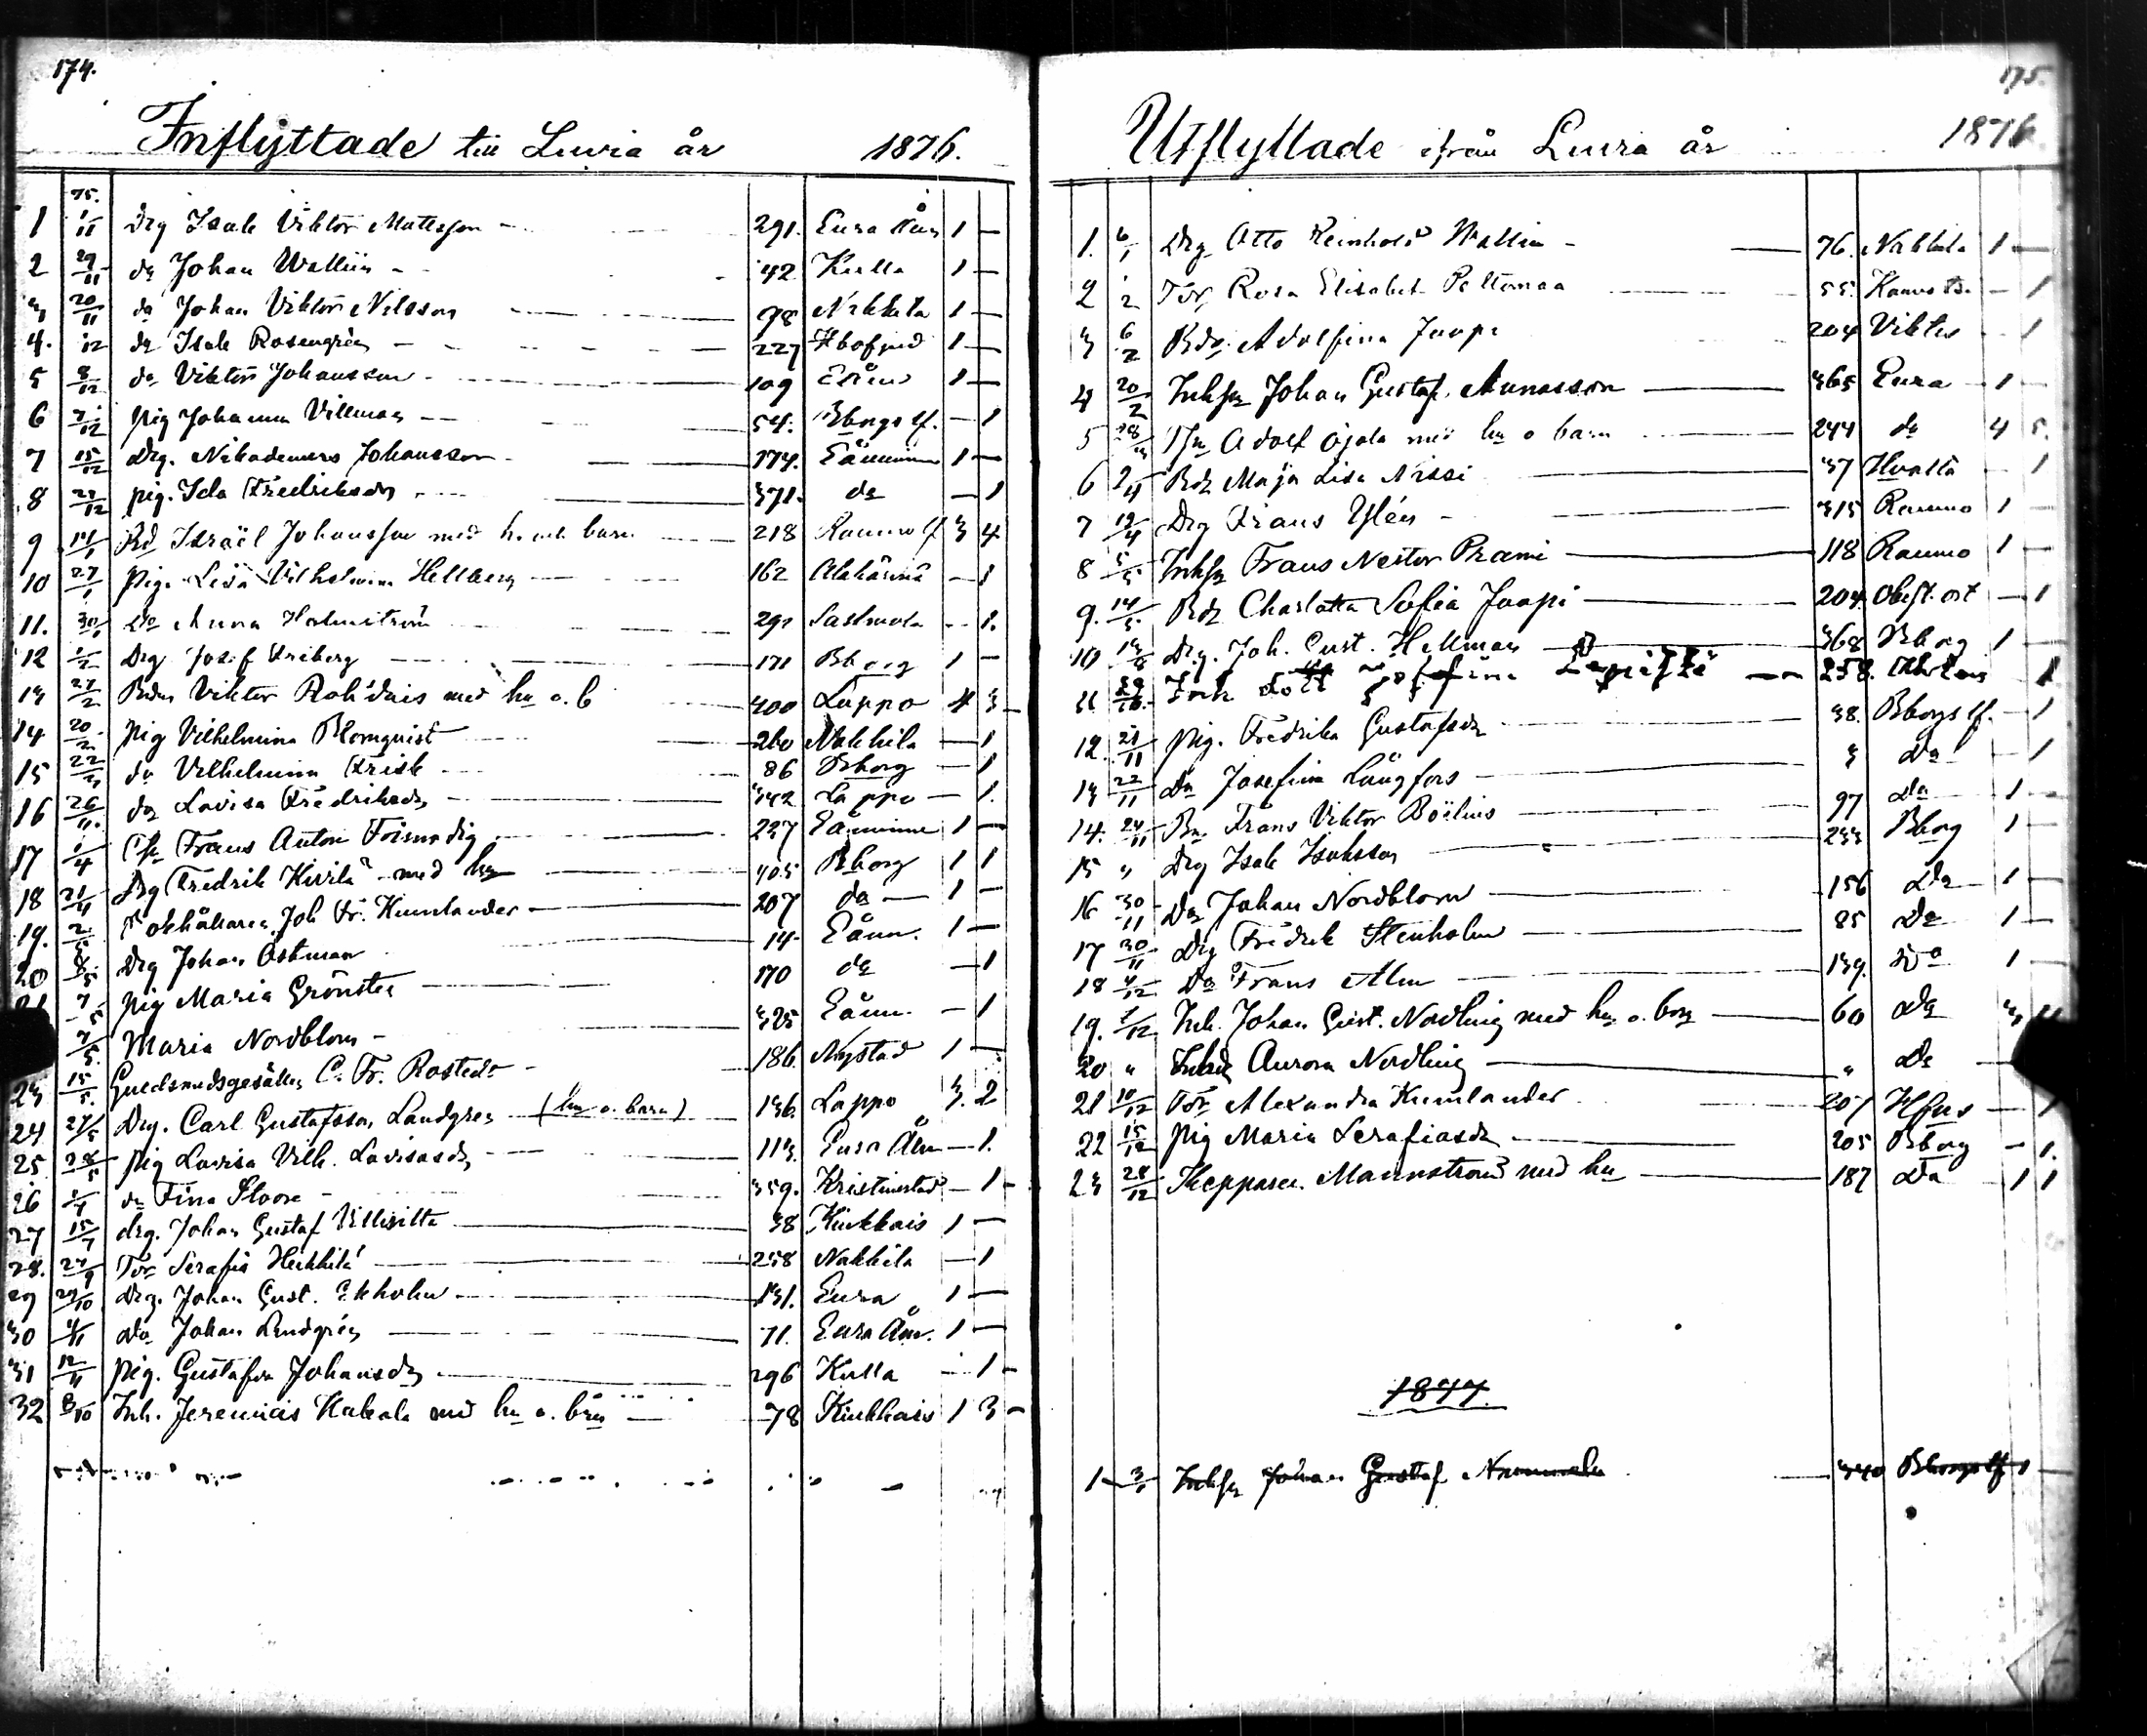 174.
Inflyttade till Luvia år 1876.
75.
1 1/11 Drg Isak Viktor Mattsson 291. Eura Åm 1 —
2 29/11 do Johan Wallin 42 Kulla 1 —
3 20/11 do Johan Viktor Nilsson 98 Nakkila 1 —
4. 1/12 do Isak Rosengrén 227 1 —
5 8/12 do Viktor Johansson 109 1 —
6 7/12 pig Johanna Villman 54. Bborgs lf. — 1
7 15/12 Drg. Nikodemus Johansson 174. Eåminne 1 —
8 27/12 pig. Ida Fredriksdr 371. do — 1
9 14/1 Rd Israël Johansson med h. och barn 218 Raumo lf 3 4
10 27/1 Pig. Lisa Vilhelmina Hellberg 162 — 1
11. 30/1 Do Anna Holmström 291 Sastmola — 1.
12 1/2 Drg Josef Friberg 171 Bborg 1 —
13 27/2 Viktor med hu o. b 400 Lappo 4 3
14 20/2 pig Vilhelmina Blomquist 260 Nakkila — 1
15 22/3 do Vilhelmina Frisk 86 Bborg — 1
16 do Lovisa Fredriksdr 342 Lappo — 1.
17 1/4 Frans Anton 227 Eåminne 1 —
18 21/4 Drg Fredrik Kivilä med hu 405 Bborg 1 1
19. 2/5 Joh Fr. Kumlander 207 do — 1 —
20 Drg Johan Östman 14 Eåm. 1 —
7/5 pig Maria Grönsten 170 do — 1
7/5 Maria Nordblom 325 Eåm. — 1
23 15/5 Guldsmedsgesällen C. Fr. Rostedt 186 Nystad 1 —
24 27/5 Drg. Carl Gustafsson Landgren (hu o. barn) 136 Lappo 3. 2
25 28/5 pig Lovisa Vilh. Lovisasdr 113. Eura Åm — 1.
26 do Fina Sloore 359. Kristinestad — 1
27 15/7 drg. Johan Gustaf Villisitta 38 Kiukkais 1 —
28. 24/9 Tor Serafia Heikkilä 258 Nakkila — 1
29 29/10 Drg. Johan Gust. Ekholm 131. Eura 1 —
30 4/11 do Johan Lindgrén 71. Eura Åm. 1 —
31 12/11 pig. Gustafva Johansdr 296 Kulla — 1
32 8/10 Inh. Jeremias Hakala med hu o. brn 78 Kiukkais 1 3
175.
Utflyttade från Luvia år 1876
1. 6/1 Drg Otto Reinhold Wallin 76. Nakkila 1 —
2 1/2 Tor Rosa Elisabet Peltomaa 55. — 1
3 6/2 Bdr Adolfina Juopi 204 — 1
4 20/2 Inhsn Johan Gustaf Manasson 365 Eura 1 —
5 28/3 Adolf Ojala med hu o barn 244 do 4 5.
6 2/4 Bdr Maja Lisa Nissi 37 — 1
7 12/4 Drg Frans Ylén 315 Raumo 1 —
8 5/5 Inhsn Frans Nestor Prami 118 Raumo 1 —
9. 14/5 Bdr Charlotta Sofia Juopi 204 Obest. ort — 1
10 Drg. Joh. Gust. Hellman 368 Bborg 1 —
11 Inh dott Josefina 258. 1
12. 21/11 pig. Fredrika Gustafsdr 38. Bborgs lf. — 1
13 22/11 Do Josefina Långfors 3 Do — 1
14. 24/11 Bn. Frans Viktor Böilius 97 Do 1 —
15 " Drg Isak Isaksson 233 Bborg 1 —
16 30/11 Do Johan Nordblom 156 Do 1 —
17 30/11 Drg Fredrik Stenholm 85 Do 1 —
18 4/12 Do Frans Alm 139. Do 1 —
19. 7/12 Inh. Johan Gust. Nordling med hu o. barn 60 Do 3
20 " Inhdr Aurora Nordling " Do —
21 10/12 Tor Alexandra Kumlander 207 Hfors — 1
22 15/12 pig Maria Serafiasdr 205 Bborg — 1.
23 28/12 Skepparen Mannström med hu 187 Do 1 1
1877.
1 3/1 Inhsn Johan Gustaf Nummela 340 Bborgs lf 1 —